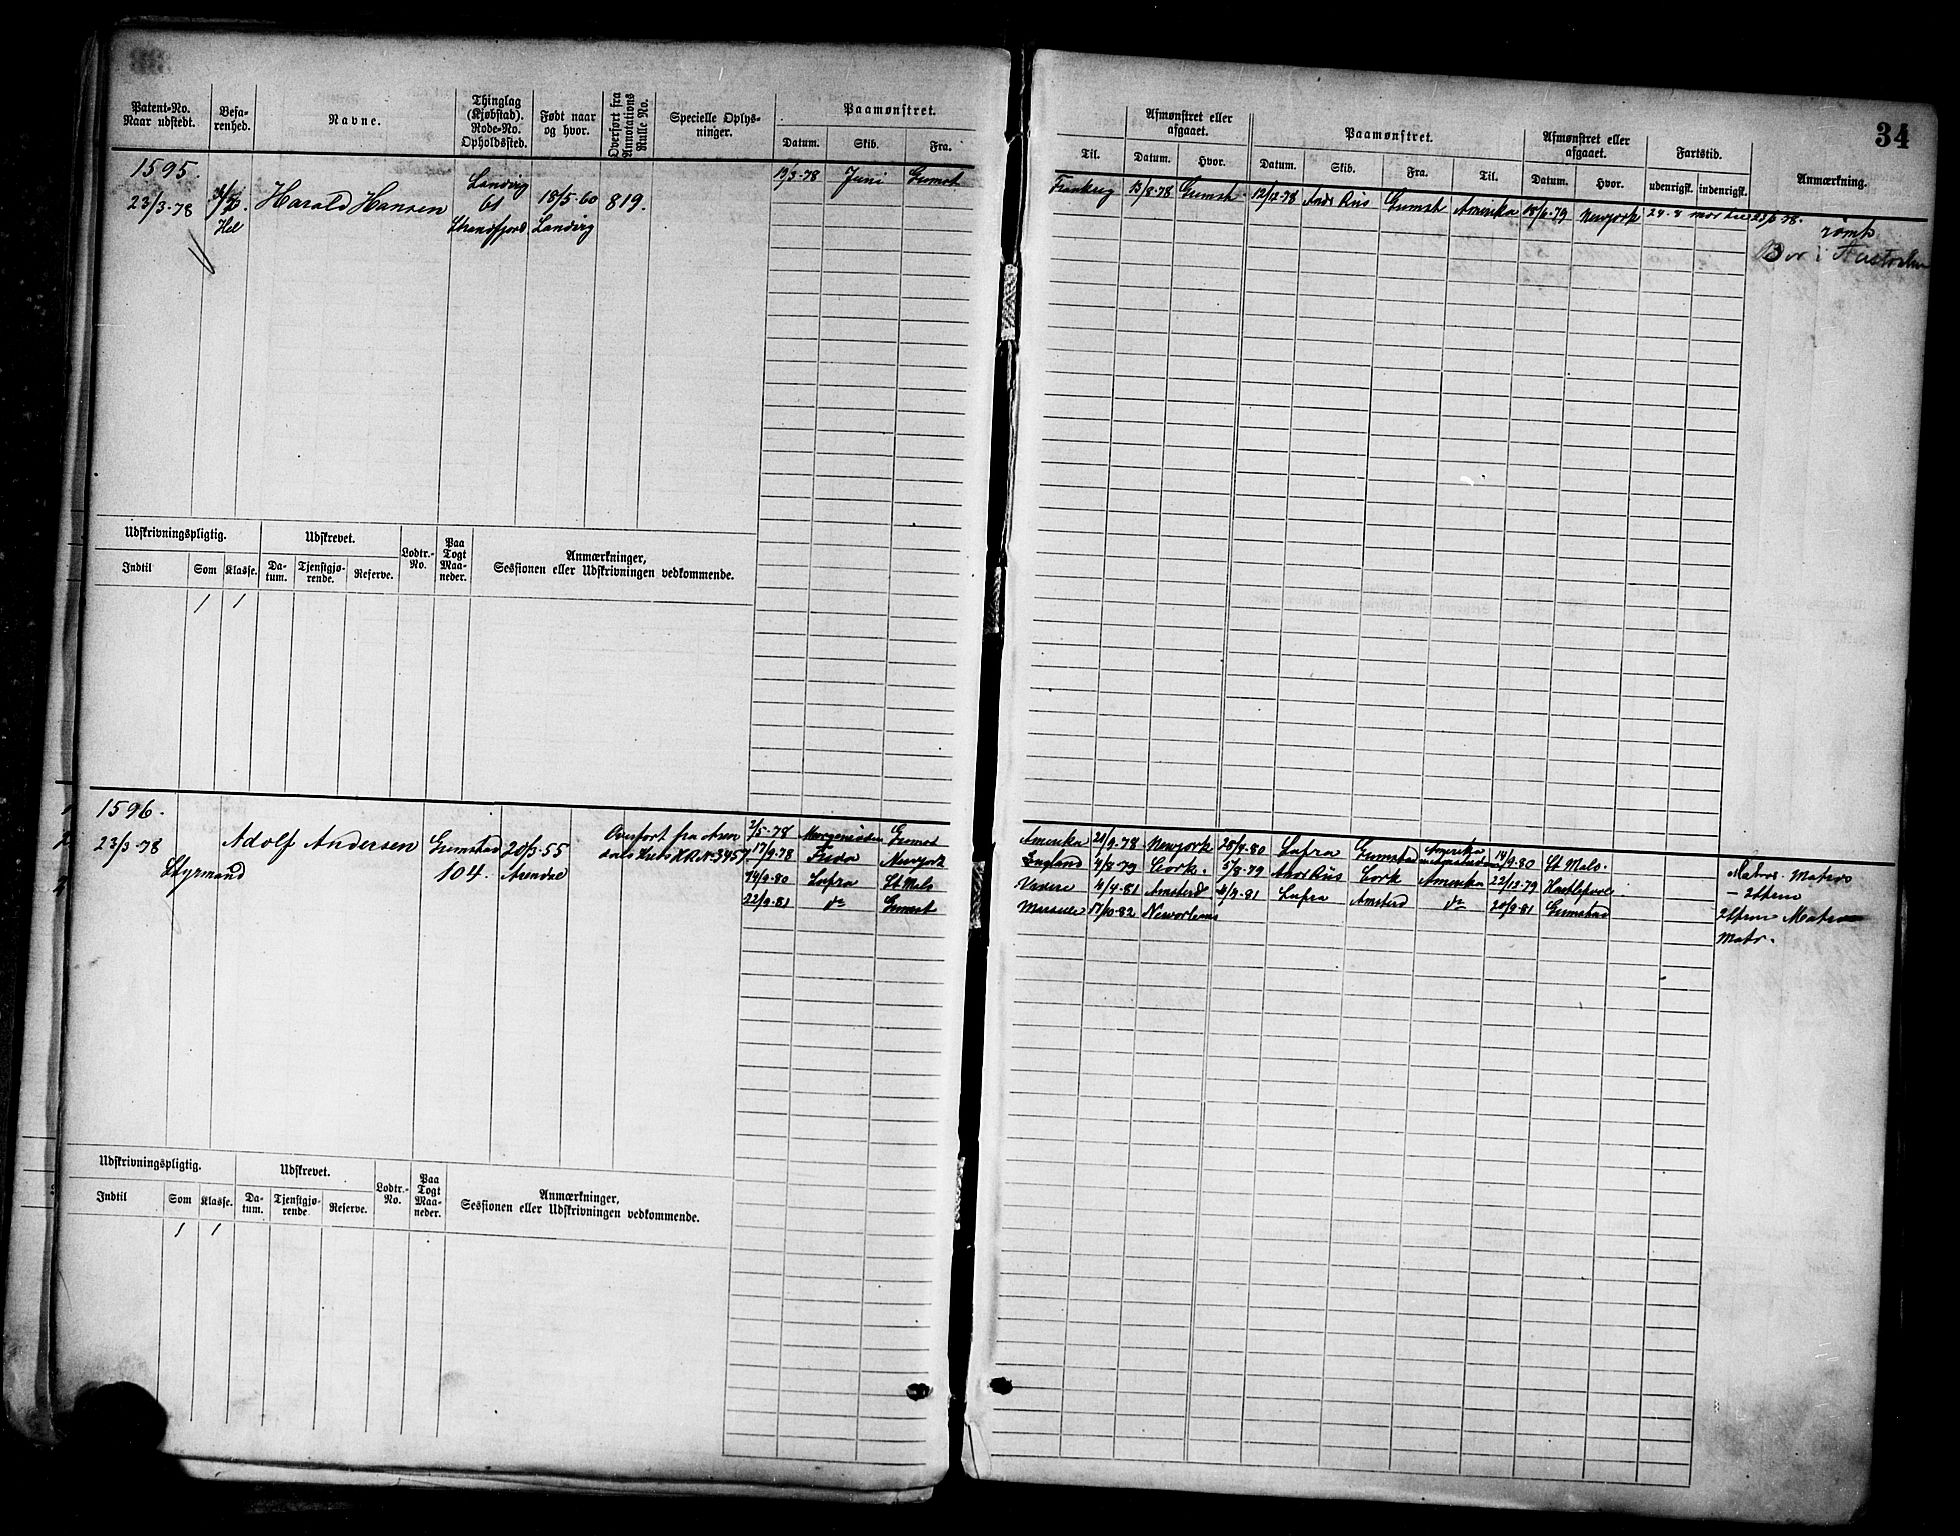 34
Patent-No. Naar udstedt.
Befarenhed.
Navne.
Thinglag (Kjøbstad). Rode-No. Opholdssted.
Født naar og hvor.
Overført fra Annotations Rulle No.
Specielle Oplysninger.
Paamønstret.
Datum. Skib. Fra.
Til.
Afmønstret eller afgaaet.
Datum. Hvor.
Paamønstret.
Datum. Skib. Fra. Til.
Afmønstret eller afgaaet.
Datum. Hvor.
Fartstid.
udenrigsk. indenrigsk.
Anmærkning.
1595.
23/3-78 Harald Hansen Landvig 61 18/5-60 Landvig 819.
Hel
19/3-78 Juni Grmst
Frankrig 13/8-78 Grmst 12/12-78 And Riis Grmst Amerika 18/6-79 Newyork
rømt
Bor i
Udskrivningspligtig.
Indtil Som Klasse.
Udskrevet.
Datum. Tjenstgjørende. Reserve.
Lodtr.-No.
Paa Togt Maaneder.
Anmærkninger,
Sessionen eller Udskrivningen vedkommende.
1 1
1596.
23/3-78 Adolf Andersen Grimstad 104. 20/3-55 Arendal
Styrmand
Overført fra Aren
2/5-78 Grmst
17/9-78 Frida Newyork
14/9-80 St Malo
22/9-81 do Grmst
Amerika 21/9-78 Newyork 28/4-80 Grimstad Amerika 14/9-80 St Malo
England 4/8-79 Cork. 5/8-79 And Riis Cork Amerika 22/12-79 Hartlepool
4/4-81 Amsterd 4/4-81 Amsterd do 20/9-81 Grimstad
17/10-82 Neworleans
Matros Matros
Matr.
Udskrivningspligtig.
Indtil Som Klasse.
Udskrevet.
Datum. Tjenstgjørende Reserve.
Lodtr.-No.
Paa Togt Maaneder.
Anmærkninger,
Sessionen eller Udskrivningen vedkommende.
1 1